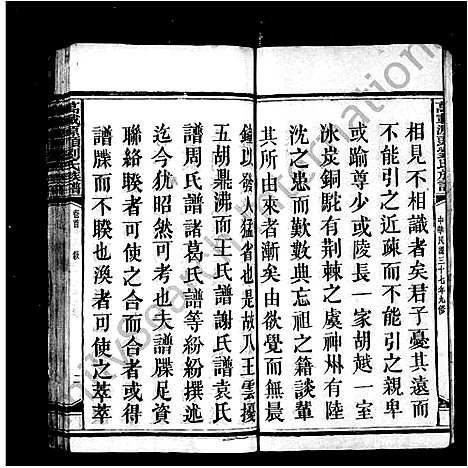 萬載源頭劉氏族譜
中華民國三十七年九修
相見不相識者矣君子憂其遠而
不能引之近疏而不能引之親卑
或踰尊少或陵長一家胡越一室
冰炭銅駝有荆棘之虞神州有陸
沈之患而歎數典忘祖之籍談輩
其所由來者漸矣由欲覺而無晨
鐘以發人猛省也是故八王雲擾
五胡鼎沸而王氏譜謝氏譜袁氏
譜周氏譜諸葛氏譜等紛紛撰述
迄今犹昭然可考也夫譜牒足資
聯絡睽者可使之合而合者或得
譜牒而不睽也渙者可使之萃萃
萬載源頭劉氏族譜
卷首